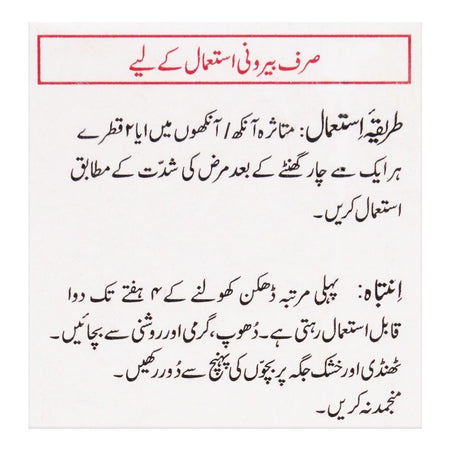 صرف بیرونی استعمال کے لیے
طریقۂ اِستعمال: متاثرہ آنکھ/آنکھوں میں ۱ یا ۲ قطرے
ہر ایک سے چار گھنٹے کے بعد مرض کی شدّت کے مطابق
استعمال کریں۔
اِنتباہ: پہلی مرتبہ ڈھکن کھولنے کے ۴ ہفتے تک دوا
قابل استعمال رہتی ہے۔ دُھوپ، گرمی اور روشنی سے بچائیں۔
ٹھنڈی اور خشک جگہ پر بچّوں کی پہنچ سے دُور رکھیں۔
منجمد نہ کریں۔